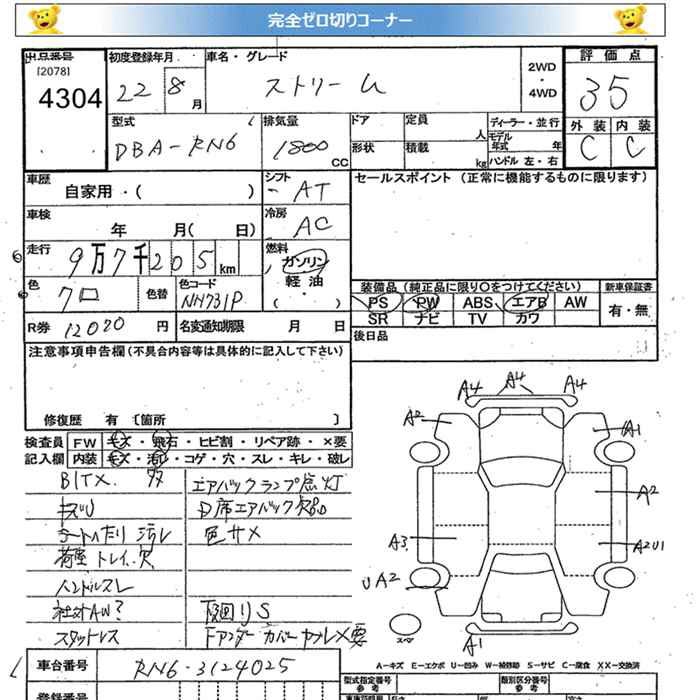 完全ゼロ切りコーナー
出品番号 初度登録年月 車名・グレード 評価点
[2078] 22 8月 ストリーム 2WD・4WD 35
4304
型式 排気量 ドア 定員 人 ディーラー・並行 外装 内装
DBA-RN6 1800 CC 形状 積載 kg モデル年式 年 C C
ハンドル 左・右
車歴 シフト セールスポイント (正常に機能するものに限ります)
自家用・( ) AT
車検 冷房
年 月( 日) AC
走行 燃料
9万7千205km ガソリン
色 色替 色コード 軽油 装備品 (純正品に限り○をつけてください) 新車保証書
クロ NH731P ・( ) PS PW ABS エアB AW 有・無
SR ナビ TV カワ
R券 12020円 名変通知期限 月 日 後日品
注意事項申告欄(不具合内容等は具体的に記入して下さい)
修復歴 有 〔箇所 〕
検査員 FW キズ・飛石・ヒビ割・リペア跡・×要
記入欄 内装 キズ・汚レ・コゲ・穴・スレ・キレ・破レ
エアバックランプ点灯
D席エアバック
キズU 色サメ
シートヘタリ 汚レ
荷室トレイ欠
ハンドルスレ
社外AW? 下廻りS
スタットレス Fアンダーカバーヤブレ×要
A4 A4 A4
A2 A1
A2
A3 A2U1
UA2
スペア
A1
A-キズ E-エクボ U-凹み W-補修跡 S-サビ C-腐食 XX-交換済
車台番号 RN6-3124025 型式指定番号 参考 類別区分番号 参考
登録番号